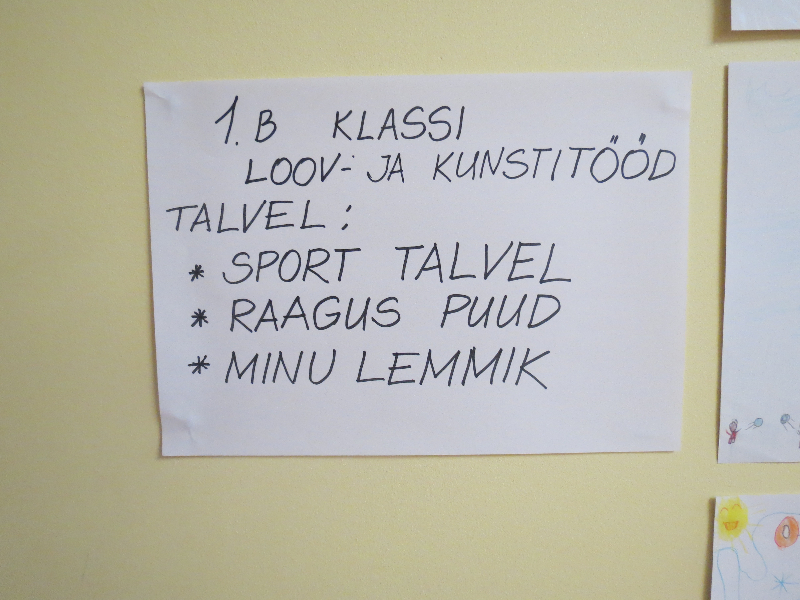 1. B KLASSI
LOOV- JA KUNSTITÖÖD
TALVEL:
* SPORT TALVEL
* RAAGUS PUUD
* MINU LEMMIK